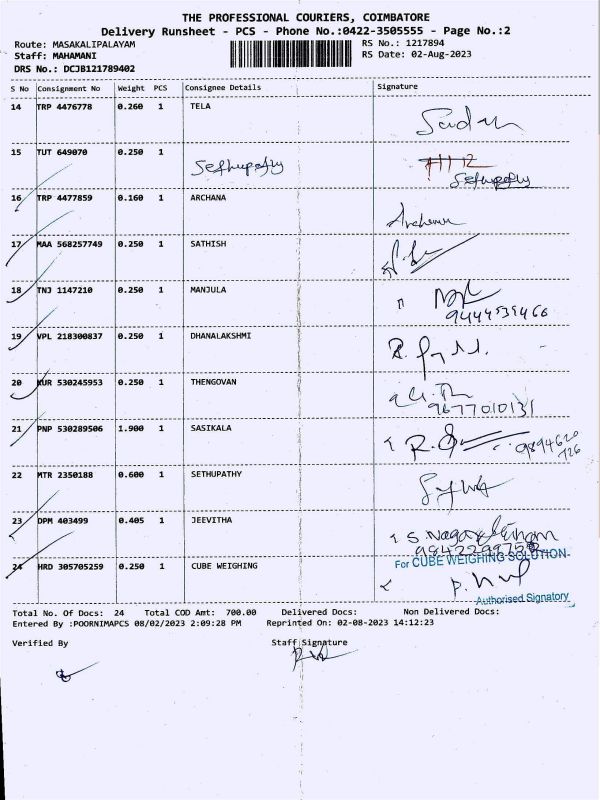 THE PROFESSIONAL COURIERS, COIMBATORE
Delivery Runsheet - PCS - Phone No.:0422-3505555 - Page No.:2
Route: MASAKALIPALAYAM RS No.: 1217894
Staff: MAHAMANI RS Date: 02-Aug-2023
DRS No.: DCJB121789402
S No Consignment No Weight PCS Consignee Details Signature
14 TRP 4476778 0.260 1 TELA
15 TUT 649070 0.250 1 Sethupathy
Sethupathy
16 TRP 4477859 0.160 1 ARCHANA Archana
17 MAA 568257749 0.250 1 SATHISH
18 TNJ 1147210 0.250 1 MANJULA
9444539466
19 VPL 218300837 0.250 1 DHANALAKSHMI
20 KUR 530245953 0.250 1 THENGOVAN
9677010131
21 PNP 530289506 1.900 1 SASIKALA
9894620
726
22 MTR 2350188 0.600 1 SETHUPATHY
23 DPM 403499 0.405 1 JEEVITHA
24 HRD 305705259 0.250 1 CUBE WEIGHING For CUBE WEIGHING SOLUTION
Authorised Signatory
Total No. Of Docs: 24 Total COD Amt: 700.00 Delivered Docs: Non Delivered Docs:
Entered By :POORNIMAPCS 08/02/2023 2:09:28 PM Reprinted On: 02-08-2023 14:12:23
Verified By Staff Signature